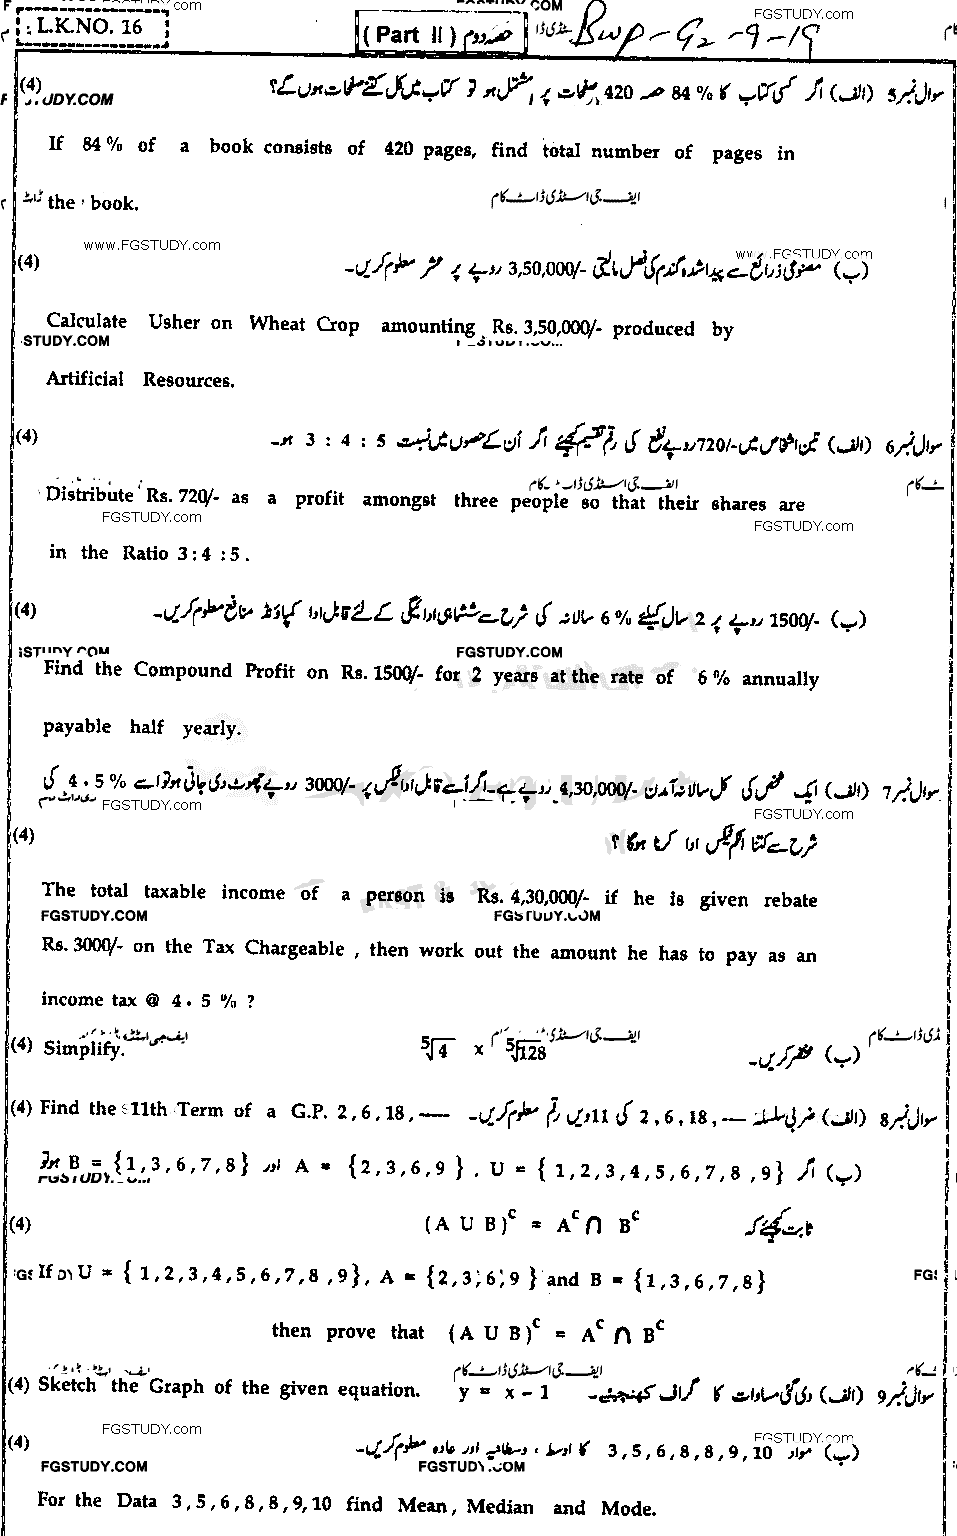 FGSTUDY.com
L.K.NO. 16
(Part II) حصہ دوم
Bwp-G2-9-19
سوال نمبر 5 (الف) اگر کسی کتاب کا 84% حصہ 420 صفحات پر مشتمل ہو تو کتاب میں کل کتنے صفحات ہوں گے؟ (4)
If 84% of a book consists of 420 pages, find total number of pages in
the book.
ایف جی اسٹڈی ڈاٹ کام
www.FGSTUDY.com
(ب) مصنوعی ذرائع سے پیدا شدہ گندم کی فصل مالیتی 3,50,000/- روپے پر عشر معلوم کریں۔ (4)
Calculate Usher on Wheat Crop amounting Rs. 3,50,000/- produced by
Artificial Resources.
سوال نمبر 6 (الف) تین اشخاص میں 720/- روپے نفع کی رقم تقسیم کیجئے اگر اُن کے حصوں میں نسبت 3 : 4 : 5 ہو۔ (4)
ایف جی اسٹڈی ڈاٹ کام
Distribute Rs. 720/- as a profit amongst three people so that their shares are
FGSTUDY.com FGSTUDY.com
in the Ratio 3:4:5.
(ب) 1500/- روپے پر 2 سال کیلئے 6% سالانہ کی شرح سے ششماہی ادائیگی کے لئے قابل ادا کمپاؤنڈ منافع معلوم کریں۔ (4)
FGSTUDY.COM
Find the Compound Profit on Rs. 1500/- for 2 years at the rate of 6% annually
payable half yearly.
سوال نمبر 7 (الف) ایک شخص کی کل سالانہ آمدن 4,30,000/- روپے ہے۔ اگر اُسے قابل ادا ٹیکس پر 3000/- روپے چھوٹ دی جاتی ہو تو اسے 4.5% کی
FGSTUDY.com FGSTUDY.com
شرح سے کتنا انکم ٹیکس ادا کرنا ہوگا ؟ (4)
The total taxable income of a person is Rs. 4,30,000/- if he is given rebate
FGSTUDY.COM FGSTUDY.COM
Rs. 3000/- on the Tax Chargeable, then work out the amount he has to pay as an
income tax @ 4.5%?
(4) Simplify. ⁵√4 x ⁵√128 (ب) مختصر کریں۔
(4) Find the 11th Term of a G.P. 2,6,18,---- سوال نمبر 8 (الف) ضربی سلسلہ 2,6,18,---- کی 11ویں رقم معلوم کریں۔
(ب) اگر U = {1,2,3,4,5,6,7,8,9} , A = {2,3,6,9} اور B = {1,3,6,7,8} ہو تو
(4) (A U B)ᶜ = Aᶜ ∩ Bᶜ ثابت کیجئے کہ
If U = {1,2,3,4,5,6,7,8,9}, A = {2,3,6,9} and B = {1,3,6,7,8}
then prove that (A U B)ᶜ = Aᶜ ∩ Bᶜ
ایف جی اسٹڈی ڈاٹ کام
(4) Sketch the Graph of the given equation. y = x - 1 سوال نمبر 9 (الف) دی گئی مساوات کا گراف کھینچیے۔
FGSTUDY.com FGSTUDY.com
(ب) مواد 3,5,6,8,8,9,10 کا اوسط ، وسطانیہ اور عادہ معلوم کریں۔ (4)
FGSTUDY.COM FGSTUDY.COM
For the Data 3,5,6,8,8,9,10 find Mean, Median and Mode.